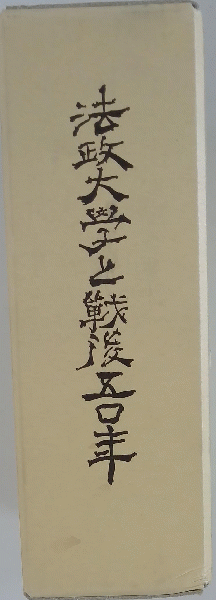 法政大学と戦後五〇年